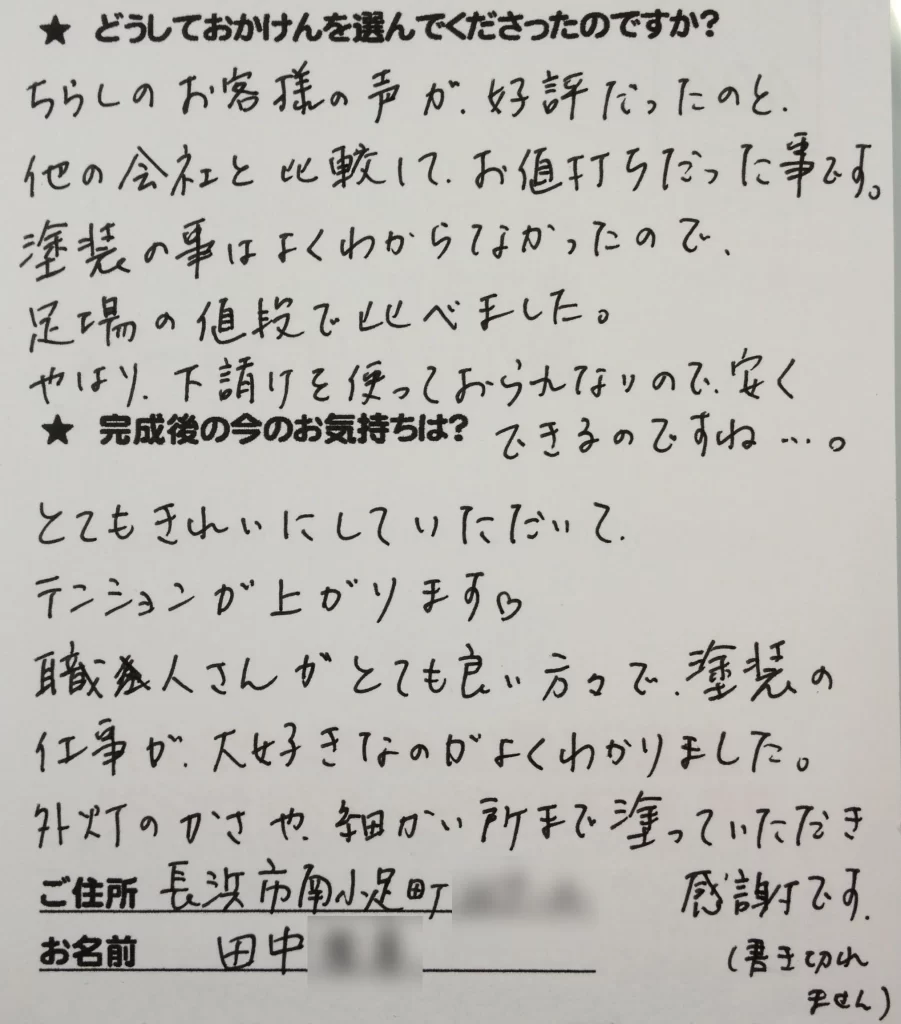 ★ どうしておかけんを選んでくださったのですか?
ちらしのお客様の声が、好評だったのと、
他の会社と比較して、お値打ちだった事です。
塗装の事はよくわからなかったので、
足場の値段で比べました。
やはり、下請けを使っておられないので、安く
できるのですね…。
★ 完成後の今のお気持ちは?
とてもきれいにしていただいて、
テンションが上がります♡
職人さんがとても良い方々で、塗装の
仕事が、大好きなのがよくわかりました。
外灯のかさや、細かい所まで塗っていただき
感謝です。
(書き切れ
ません)
ご住所 長浜市南小足町
お名前 田中